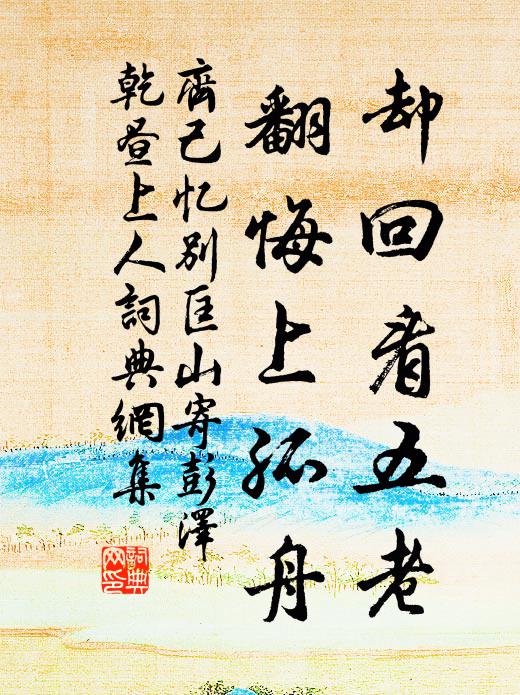 却回看五老
翻悔上孤舟
齊己忆别匡山寄彭澤
乾昼上人詞典網集
詞典
网印